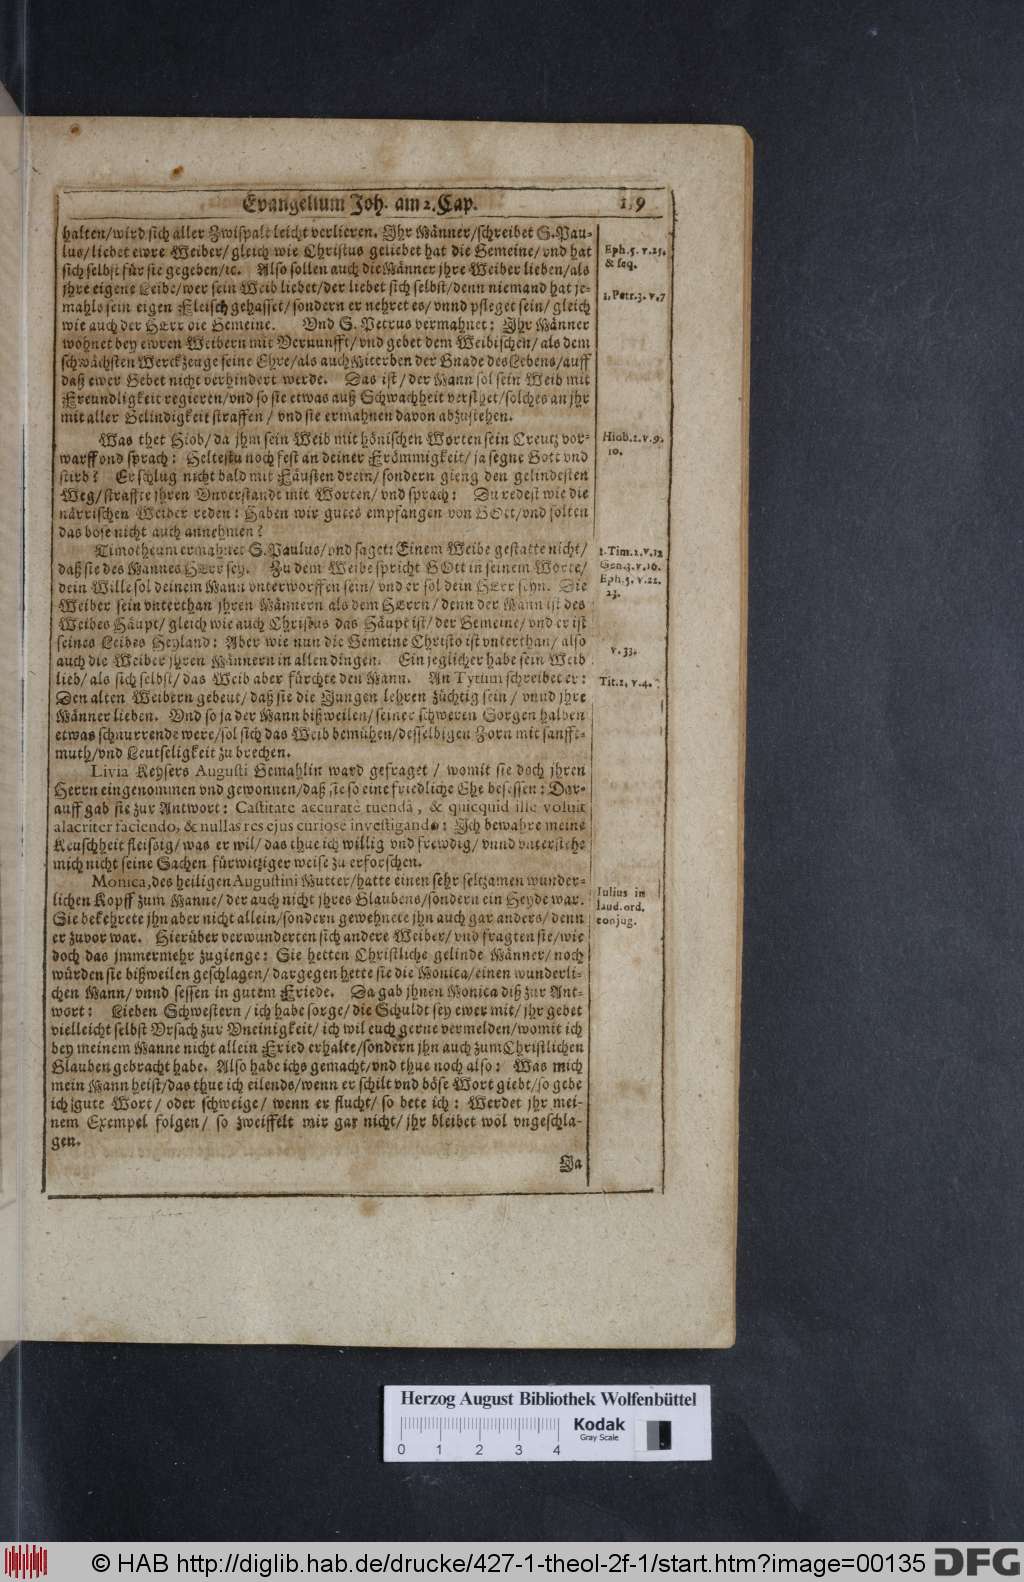 Evangelium Joh. am 2. Cap. 1 9
halten/wird sich aller Zwispalt leicht verlieren. Ihr Männer/schreibet S. Pau-
lus/liebet ewre Weiber/gleich wie Christus geliebet hat die Gemeine/vnd hat
sich selbst für sie gegeben/ıc. Also sollen auch die Männer jhre Weiber lieben/als
jhre eigene Leibe/wer sein Weib liebet/der liebet sich selbst/denn niemand hat je-
mahls sein eigen Fleisch gehasset/sondern er nehret es/vnnd pfleget sein/gleich
wie auch der HErr die Gemeine. Vnd S. Petrus vermahnet: Ihr Männer
wohnet bey ewren Weibern mit Vernunfft/vnd gebet dem Weibischen/als dem
schwächsten Werckzeuge seine Ehre/als auch Miterben der Gnade des Lebens/auff
daß ewer Gebet nicht verhindert werde. Das ist/der Mann sol sein Weib mit
Freundligkeit regieren/vnd so sie etwas auß Schwachheit versihet/solches an jhr
mit aller Gelindigkeit straffen/vnd sie ermahnen davon abzustehen.
Eph. 5. v. 25.
& seq.
1. Petr. 3. v. 7
Was thet Hiob/da jhm sein Weib mit hönischen Worten sein Creutz vor-
warff vnd sprach: Heltestu noch fest an deiner Frömmigkeit/ja segne Gott vnd
stirb? Er schlug nicht bald mit Fäusten drein/sondern gieng den gelindesten
Weg/straffte jhren Vnverstandt mit Worten/vnd sprach: Du redest wie die
närrischen Weiber reden: Haben wir gutes empfangen von GOtt/vnd solten
das böse nicht auch annehmen?
Hiob. 2. v. 9.
10.
Timotheum ermahnet S. Paulus/vnd saget: Einem Weibe gestatte nicht/
daß sie des Mannes HErr sey. Zu dem Weibe spricht GOtt in seinem Worte/
dein Wille sol deinem Mann vnterworffen sein/vnd er sol dein HErr seyn. Die
Weiber sein vnterthan jhren Männern als dem HErrn/denn der Mann ist des
Weibes Häupt/gleich wie auch Christus das Häupt ist/der Gemeine/vnd er ist
seines Leibes Heyland: Aber wie nun die Gemeine Christo ist vnterthan/also
auch die Weiber jhren Männern in allen dingen. Ein jeglicher habe sein Weib
lieb/als sich selbst/das Weib aber fürchte den Mann. An Tytum schreibet er:
Den alten Weibern gebeut/daß sie die Jungen lehren züchtig sein/vnnd jhre
Männer lieben. Vnd so ja der Mann bißweilen/seiner schweren Sorgen halben
etwas schnurrende were/sol sich das Weib bemühen/desselbigen Zorn mit sanfft-
muth/vnd Leutseligkeit zu brechen.
1. Tim. 2. v. 12
Gen. 3. v. 16.
Eph. 5. v. 22.
23.
v. 33.
Tit. 2. v. 4.
Livia Keysers Augusti Gemahlin ward gefraget/womit sie doch jhren
Herrn eingenommen vnd gewonnen/daß sie so eine friedliche Ehe besessen: Dar-
auff gab sie zur Antwort: Castitate accuratè tuendâ, & quicquid ille voluit
alacriter faciendo, & nullas res ejus curiose investigando: Ich bewahre meine
Keuschheit fleissig/was er wil/das thue ich willig vnd frewdig/vnnd vnterstehe
mich nicht seine Sachen fürwitziger weise zu erforschen.
Monica, des heiligen Augustini Mutter/hatte einen sehr seltzamen wunder-
lichen Kopff zum Manne/der auch nicht jhres Glaubens/sondern ein Heyde war.
Sie bekehrete jhn aber nicht allein/sondern gewehnete jhn auch gar anders/denn
er zuvor war. Hierüber verwunderten sich andere Weiber/vnd fragten sie/wie
doch das jmmermehr zugienge: Sie hetten Christliche gelinde Männer/noch
würden sie bißweilen geschlagen/dargegen hette sie die Monica/einen wunderli-
chen Mann/vnnd sessen in gutem Friede. Da gab jhnen Monica diß zur Ant-
wort: Lieben Schwestern/ich habe sorge/die Schuldt sey ewer mit/jhr gebet
vielleicht selbst Vrsach zur Vneinigkeit/ich wil euch gerne vermelden/womit ich
bey meinem Manne nicht allein Fried erhalte/sondern jhn auch zum Christlichen
Glauben gebracht habe. Also habe ichs gemacht/vnd thue noch also: Was mich
mein Mann heist/das thue ich eilends/wenn er schilt vnd böse Wort giebt/so gebe
ich gute Wort/oder schweige/wenn er flucht/so bete ich: Werdet jhr mei-
nem Exempel folgen/so zweiffelt mir gar nicht/jhr bleibet wol vngeschla-
gen.
Julius in
laud. ord.
conjug.
Ja
Herzog August Bibliothek Wolfenbüttel
Kodak
Gray Scale
0 1 2 3 4
© HAB http://diglib.hab.de/drucke/427-1-theol-2f-1/start.htm?image=00135
DFG